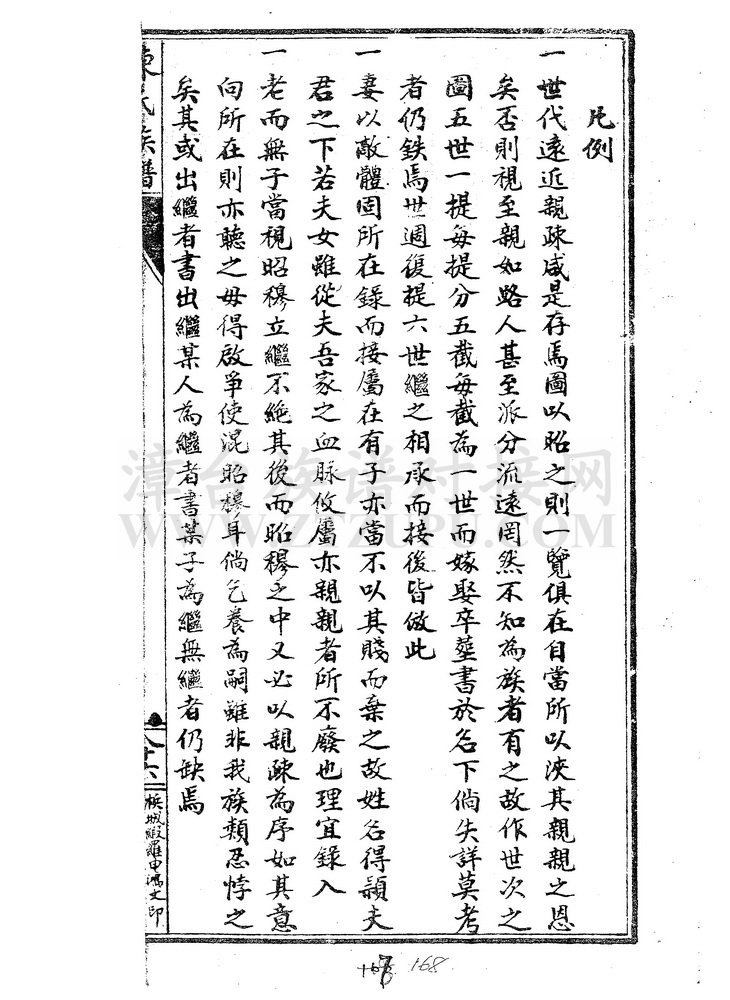 凡例
一世代遠近親疎咸是存焉圖以昭之則一覽俱在目當所以浹其親親之恩
矣否則視至親如路人甚至派分流遠罔然不知為族者有之故作世次之
圖五世一提每提分五截每截為一世而嫁娶卒塟書於名下倘失詳莫考
者仍鉄焉世週復提六世繼之相承而接後皆倣此
一妻以敵體固所在錄而接屬在有子亦當不以其賤而棄之故姓名得頴夫
君之下若夫女雖從夫吾家之血脉攸屬亦親親者所不廢也理宜錄入
一老而無子當視昭穆立繼不絶其後而昭穆之中又必以親疎為序如其意
向所在則亦聽之毋得啟爭使混昭穆耳倘乞養為嗣雖非我族類忍悖之
矣其或出繼者書出繼某人為繼者書某子為繼無繼者仍缺焉
陳氏族譜
八十六
檳城緞羅申鴻文印
漳台族谱对接网
WWW.ZTZUPU.COM
168